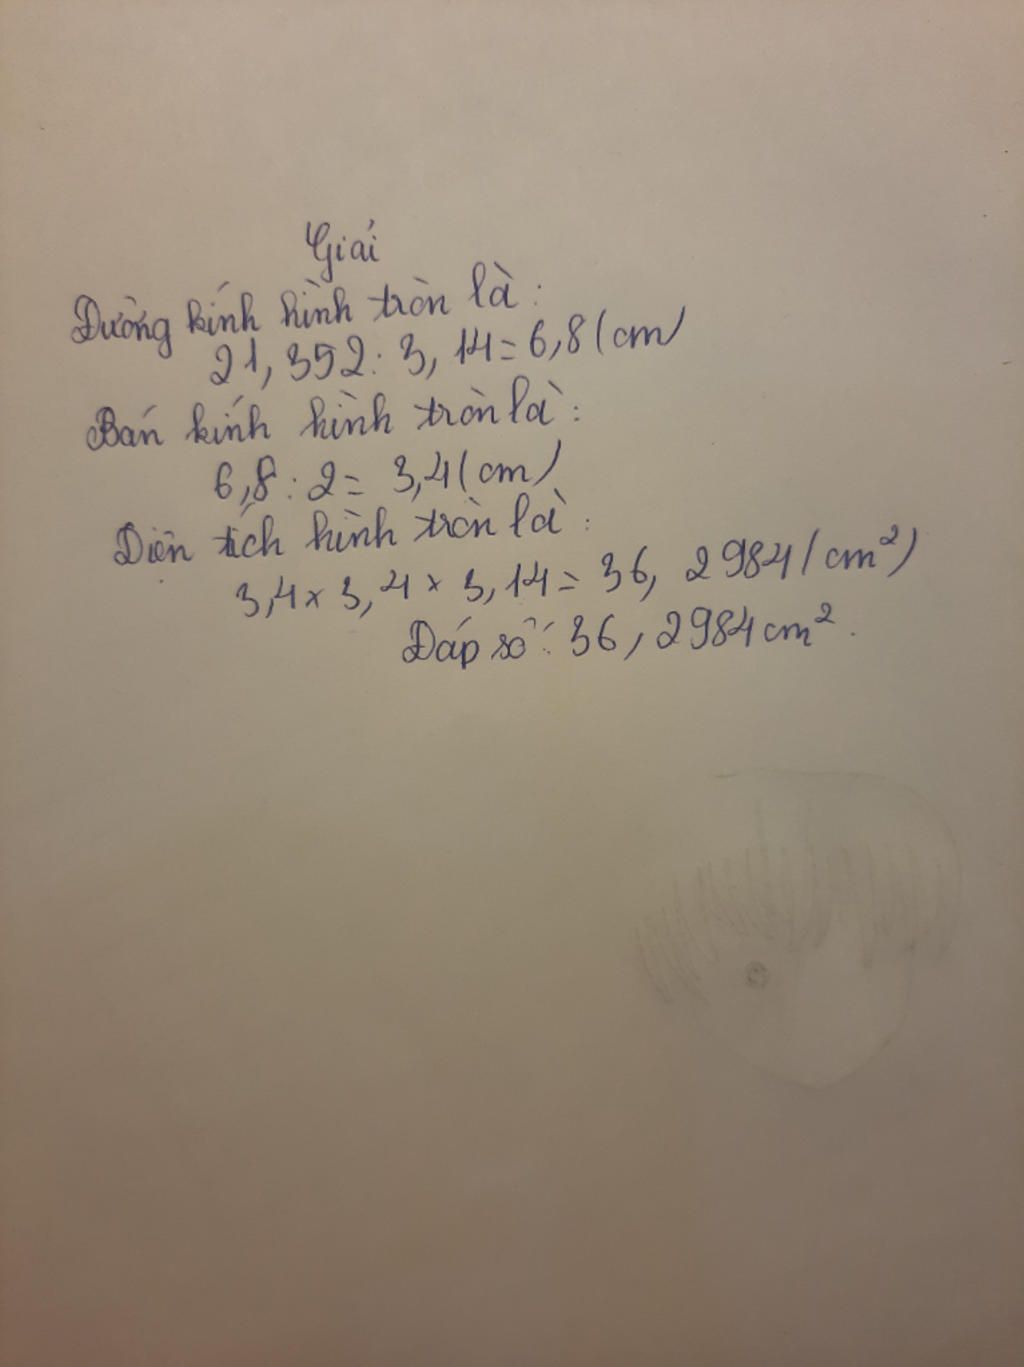 Giải
Đường kính hình tròn là:
21,352: 3,14=6,8(cm)
Bán kính hình tròn là:
6,8:2= 3,4(cm)
Diện tích hình tròn là:
3,4x3,4x3,14=36,2984(cm²)
Đáp số: 36,2984cm².